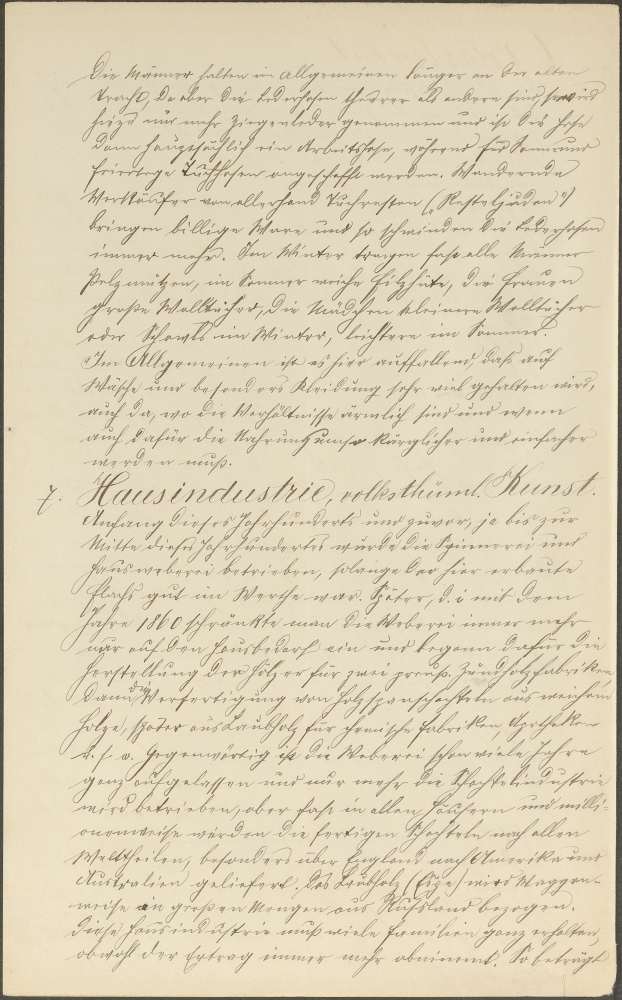 Die Männer halten im Allgemeinen länger an der alten
Tracht, da aber die Lederhosen theurer als andere sind, so wird
hiezu nur mehr Ziegenleder genommen und ist die Hose
dann hauptsächlich eine Arbeitshose, während für Sonn und
Feiertage Tuchhosen angeschafft werden. Wandernde
Verkäufer von allerhand Tuchresten („Resteljuden“)
bringen billige Ware und so schwinden die Lederhosen
immer mehr. Im Winter tragen fast alle Männer
Pelzmützen, im Sommer weiche Filzhüte, die Frauen
große Wolltücher, die Mädchen kleinere Wolltücher
oder Schawls im Winter, leichtere im Sommer.
Im Allgemeinen ist es hier auffallend, daß auf
Wäsche und besonders Kleidung sehr viel gehalten wird,
auch da, wo die Verhältnisse ärmlich sind und wenn
auch dafür die Nahrung umso kärglicher und einfacher
werden muß.
7. Hausindustrie, volksthüml. Kunst.
Anfang dieses Jahrhunderts und zuvor, ja bis zur
Mitte dieses Jahrhundertes wurde die Spinnerei und
Hausweberei betrieben, solange der hier erbaute
Flachs gut im Werthe war. Später, d. i. mit dem
Jahre 1860 schränkte man die Weberei immer mehr
nur auf den Hausbedarf ein und begann dafür die
Herstellung der Hölzer für zwei preuß. Zündholzfabriken,
dann die Verfertigung von Holzspanschachteln aus weichem
Holze, später aus Laubholz für chemische Fabriken, Apotheken
u. s. w. Gegenwärtig ist die Weberei schon viele Jahre
ganz aufgelassen und nur mehr die Schachtelindustrie
wird betrieben, aber fast in allen Häusern und milli-
onenweise werden die fertigen Schachteln nach allen
Welttheilen, besonders über England nach Amerika und
Australien geliefert. Das Laubholz (Espe) wird Waggon-
weise in großen Mengen aus Rußland bezogen.
Diese Hausindustrie muß viele Familien ganz erhalten,
obwohl der Ertrag immer mehr abnimmt. So beträgt